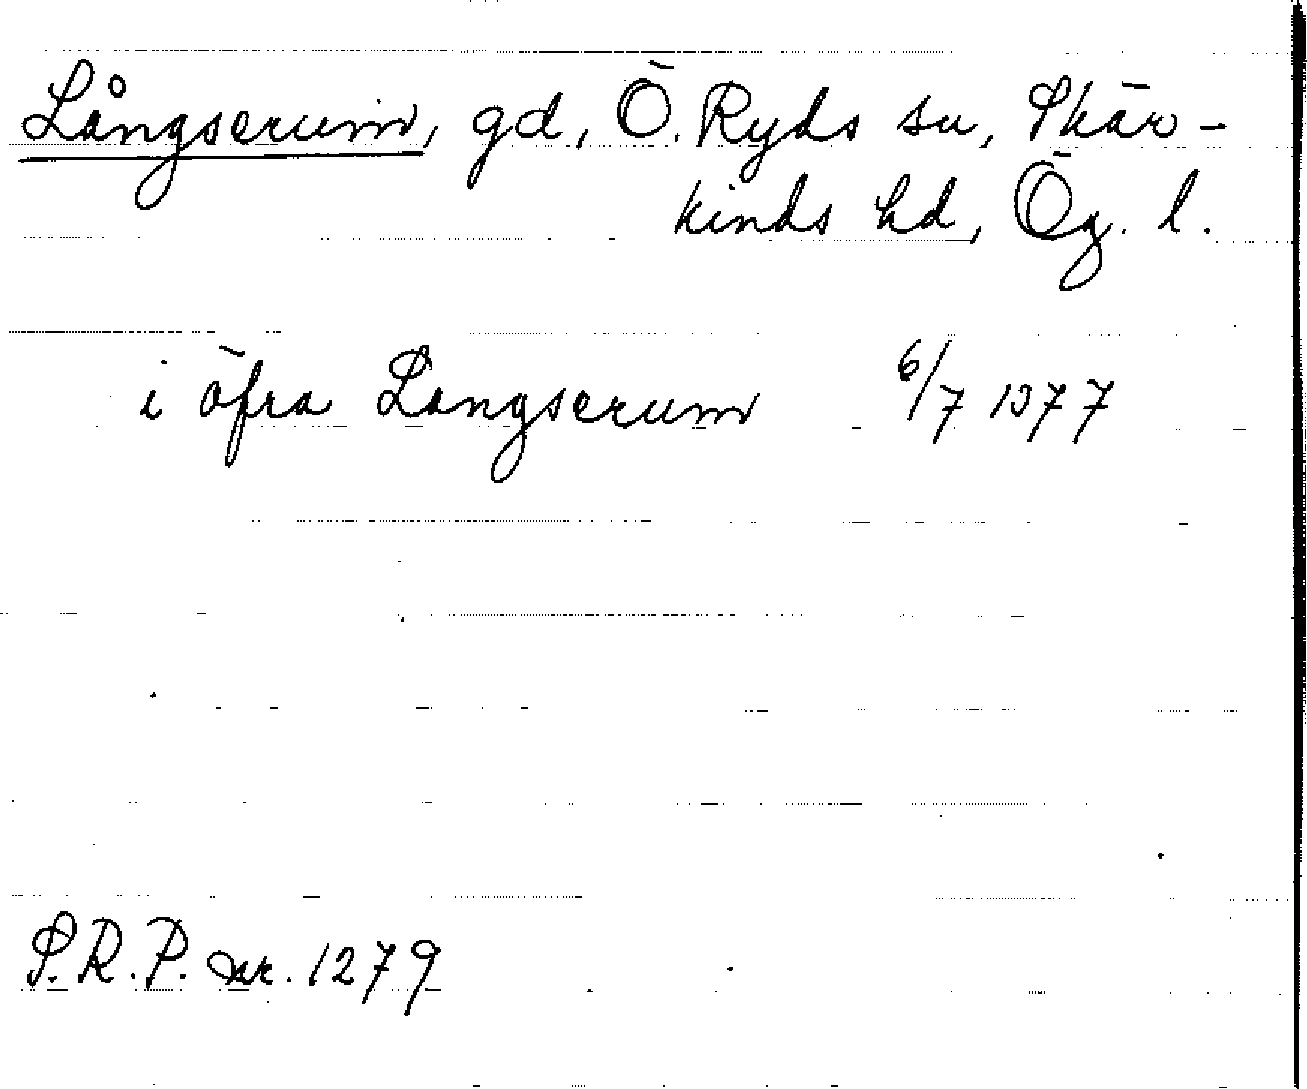 Långserum, gd, Ö. Ryds sn, Skär-
kinds hd, Ög. l.
i öfra Langserum 6/7 1377
S.R.P. nr. 1279